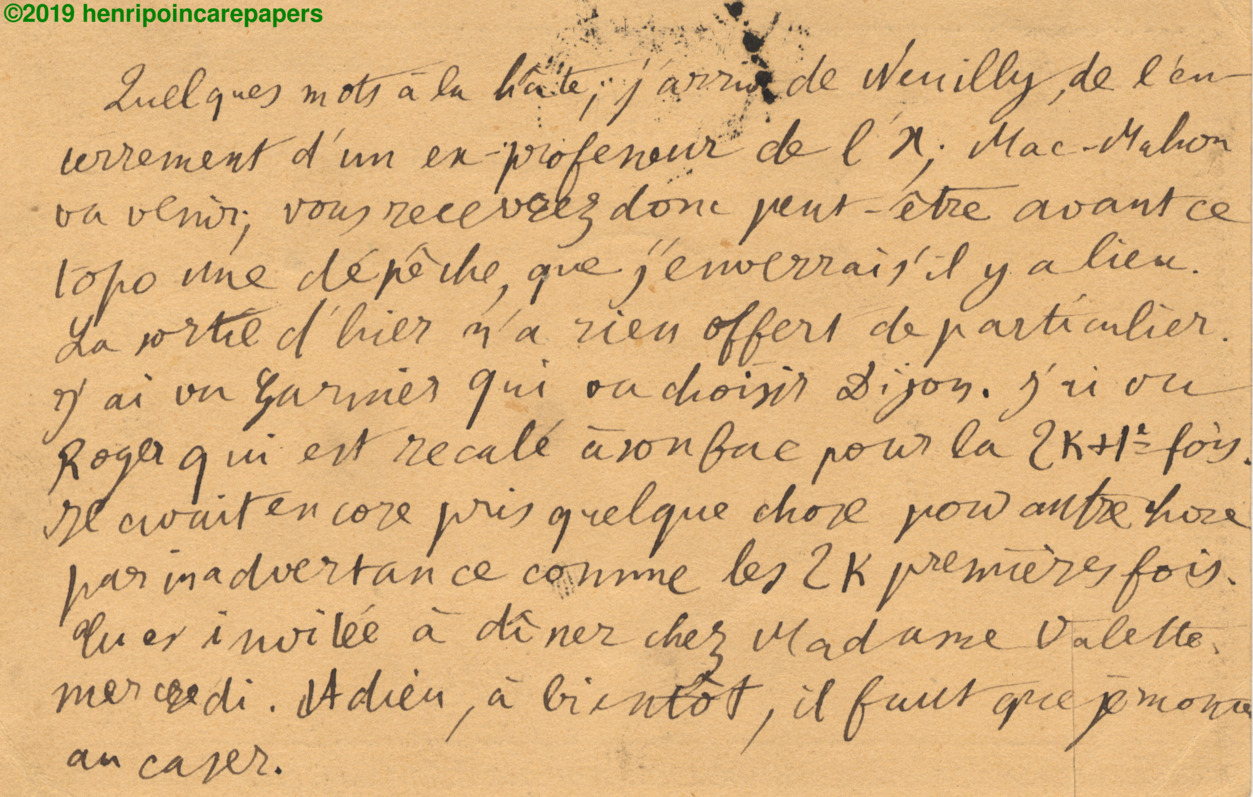 ©2019 henripoincarepapers
Quelques mots à la hâte; j'arrive de Neuilly, de l'en-
terrement d'un ex-professeur de l'X; Mac-Mahon
va venir; vous recevrez donc peut-être avant ce
topo une dépêche, que j'enverrai s'il y a lieu.
La sortie d'hier n'a rien offert de particulier.
J'ai vu Garnier qui va choisir Dijon. J'ai vu
Roger qui est recalé à son bac pour la 2K+1e fois.
Il avait encore pris quelque chose pour autre chose
par inadvertance comme les 2K premières fois.
Tu es invitée à dîner chez Madame Valette
mercredi. Adieu, à bientôt, il faut que je monte
au caser.